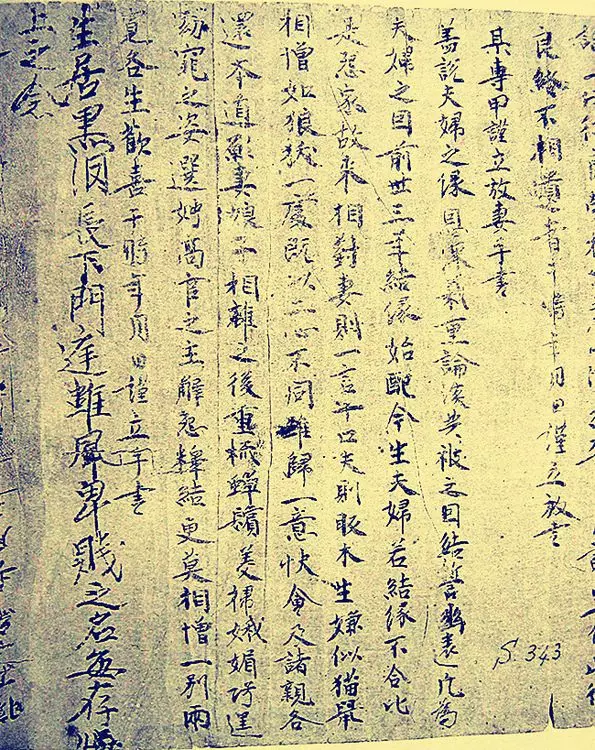 終不相遺者于時年月日謹立放書
某專甲謹立放妻手書
盖説夫婦之緣恩深義重論談共被之因結誓幽遠凡為
夫婦之因前世三年結緣始配今生夫婦若結緣不合比
是怨家故來相對妻則一言十口夫則反木生嫌似猫鼠
相憎如狼一處既以二心不同難歸一意快會及諸親各
還本道願妻娘子相離之後重梳蟬鬢美掃娥媚巧逞
窈窕之姿選娉高官之主解怨釋結更莫相憎一別兩
寬各生歡喜于時年月日謹立手書
生居黑長下門庭難卑賤之名每存
上之念
S. 343